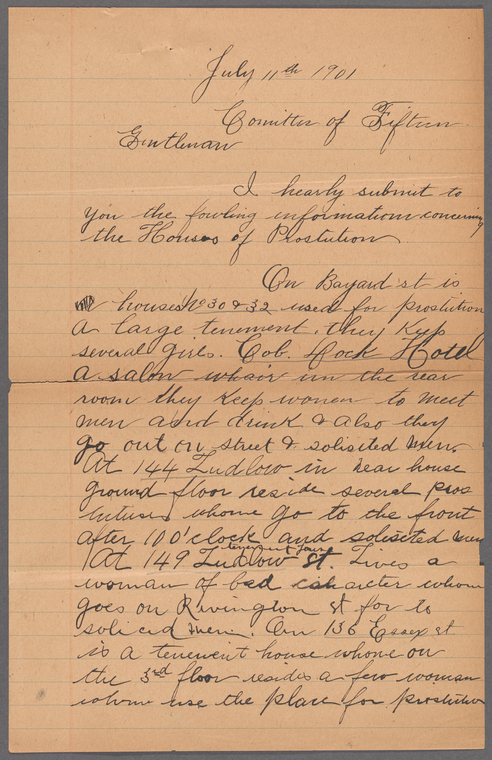 July 11th 1901
Comittee of Fifteen
Gentleman
I hearly submit to
you the fowling information concerning
the Houses of Prostution
On Bayard st is
houses No 30 & 32 used for prostution
a large tenement, they kep
several girls. Cob. Dock Hotel
a salon whair in the rear
room they keep women to meet
men and drink & also they
go out on street & solisited men.
At 144 Ludlow in rear house
ground floor reside several pros
tutues whome go to the front
after 10 O'clock and soliseted men
At 149 Ludlow st. Lives a
tenement house
woman of bad charcter whom
goes on Rivington st for to
soliced men. On 136 Essex st
is a tenement house whome on
the 3rd floor resides a few woman
whome use the place for prostution